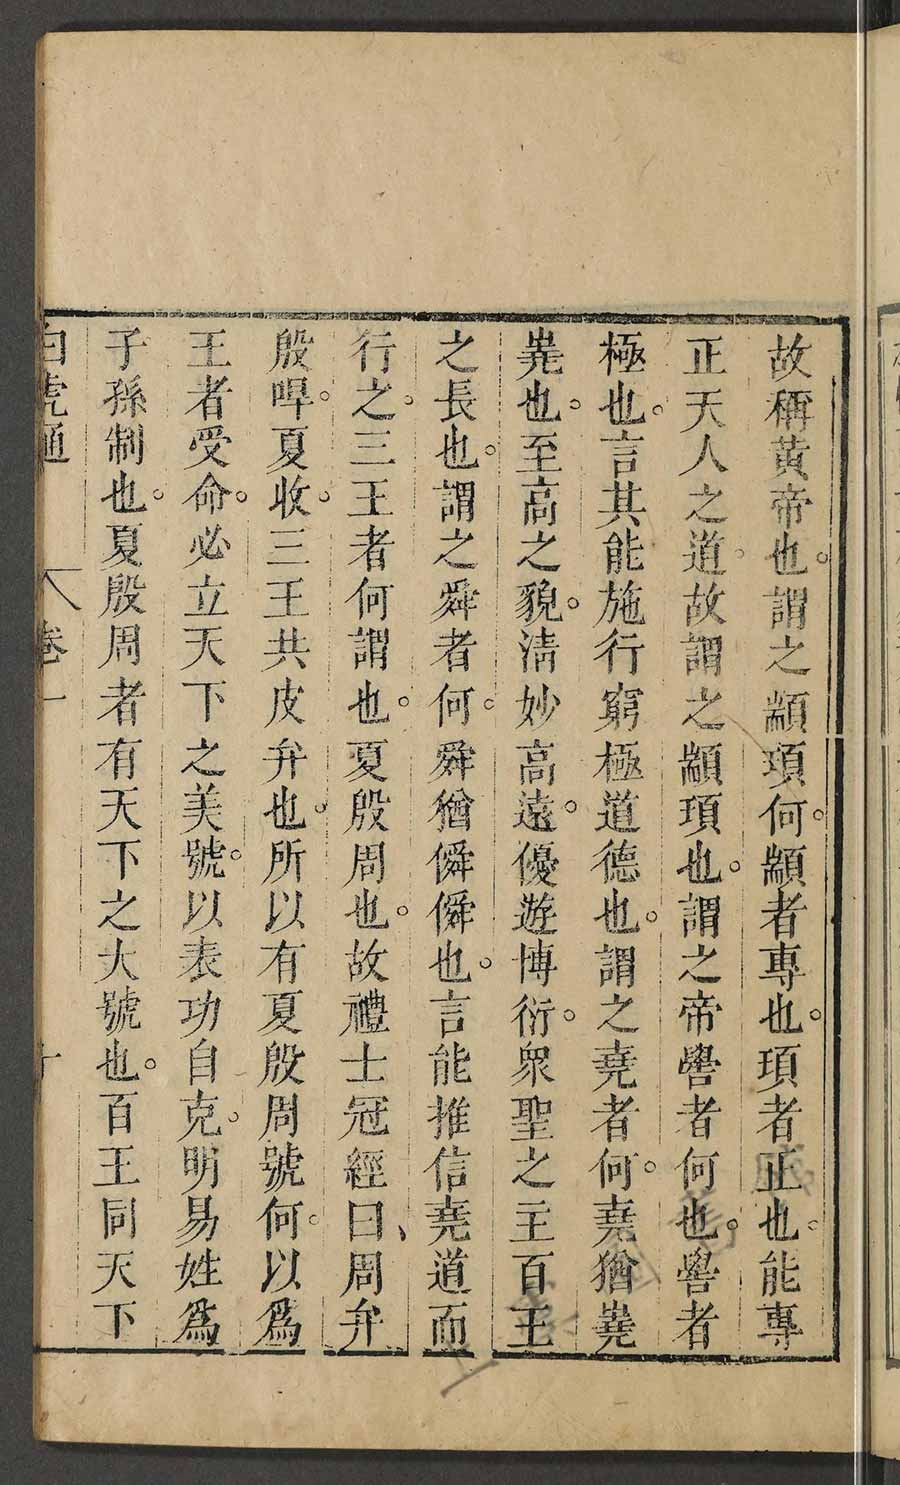 故稱黄帝也。謂之顓頊何。顓者專也。頊者正也。能專
正天人之道。故謂之顓頊也。謂之帝嚳者何也。嚳者
極也。言其能施行窮極道德也。謂之堯者何。堯猶嶤
嶤也。至高之貌。清妙高遠。優遊博衍。眾聖之主百王
之長也。謂之舜者何。舜猶僢僢也。言能推信堯道而
行之。三王者何謂也。夏殷周也。故禮士冠經曰、周弁
殷哻。夏收。三王共皮弁也。所以有夏殷周號何。以爲
王者受命。必立天下之美號。以表功自克。明易姓爲
子孫制也。夏殷周者有天下之大號也。百王同天下
白虎通 卷一 十